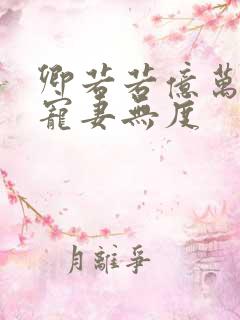 卿若若億萬
寵妻無度
月離爭